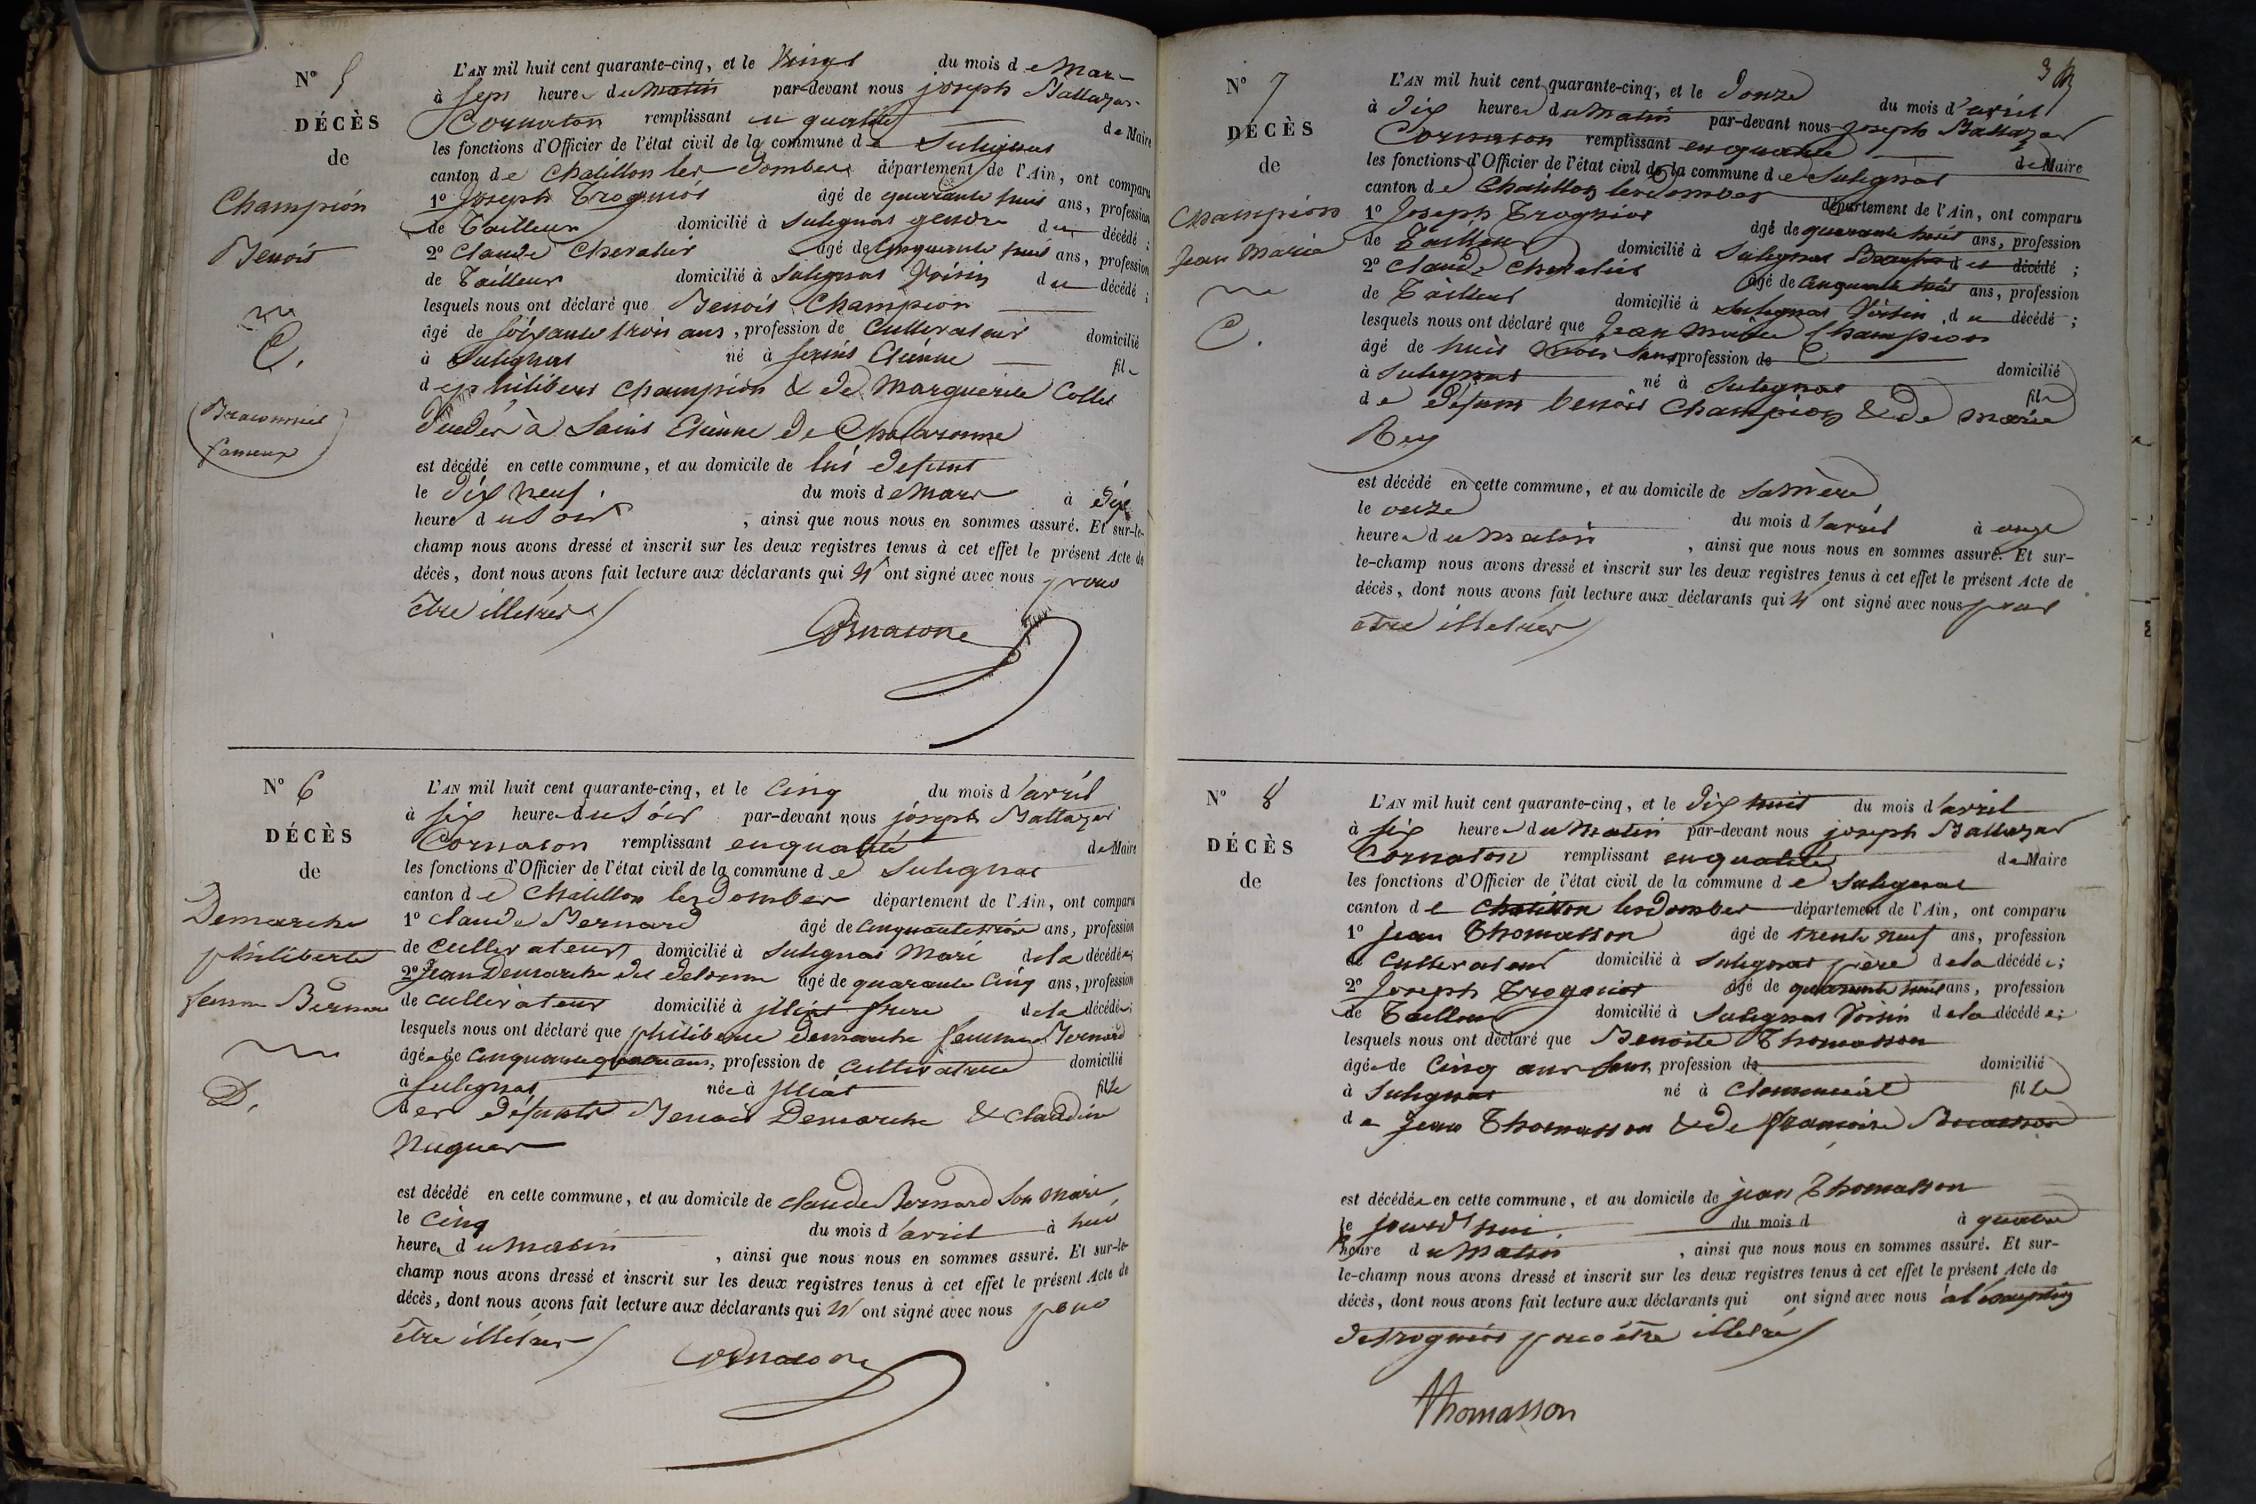 N° 5
DÉCÈS
de
Champion
Benoît
C.
Braconnier
fameux
L'AN mil huit cent quarante-cinq, et le Vingt du mois de Mars
à sept heures du Matin par-devant nous joseph Baltazar
Cornaton remplissant en qualité de Maire
les fonctions d'Officier de l'état civil de la commune de Sulignat
canton de Chatillon les Dombes département de l'Ain, ont comparu
1° Joseph Trogniot âgé de quarante huit ans, profession
de Tailleur domicilié à Sulignat gendre du décédé ;
2° Claude Chevalier âgé de Cinquante huit ans, profession
de Tailleur domicilié à Sulignat Voisin du décédé ;
lesquels nous ont déclaré que Benoit Champion
âgé de soixante trois ans, profession de Cultivateur domicilié
à Sulignat né à Saint Etienne fils
de philibert Champion & de Marguerite Collet
décédés à Saint Etienne de Chalaronne
est décédé en cette commune, et au domicile de lui defunt
le dix neuf du mois de Mars à dix
heure du Soir , ainsi que nous nous en sommes assuré. Et sur-le-
champ nous avons dressé et inscrit sur les deux registres tenus à cet effet le présent Acte de
décès, dont nous avons fait lecture aux déclarants qui n'ont signé avec nous pour
être illetrés
Cornaton
N° 6
DÉCÈS
de
Demarche
philiberte
femme Bernard
D.
L'AN mil huit cent quarante-cinq, et le Cinq du mois d'avril
à six heure du Soir par-devant nous joseph Baltazar
Cornaton remplissant en qualité de Maire
les fonctions d'Officier de l'état civil de la commune de Sulignat
canton de Chatillon les Dombes département de l'Ain, ont comparu
1° Claude Bernard âgé de Cinquante trois ans, profession
de Cultivateur domicilié à Sulignat Mari de la décédée ;
2° Jean Demarche dit âgé de quarante Cinq ans, profession
de Cultivateur domicilié à Illiat frere de la décédée ;
lesquels nous ont déclaré que philiberte Demarche femme Bernard
âgée de Cinquante quatre ans, profession de Cultivatrice domicilié
à Sulignat née à Illiat fille
des défunts Benoit Demarche & Claudine
Nuguet
est décédé en cette commune, et au domicile de Claude Bernard Son Mari,
le Cinq du mois d'avril à huit
heure du Matin , ainsi que nous nous en sommes assuré. Et sur-le-
champ nous avons dressé et inscrit sur les deux registres tenus à cet effet le présent Acte de
décès, dont nous avons fait lecture aux déclarants qui n'ont signé avec nous pour
être illetrés
Cornaton
3
N° 7
DÉCÈS
de
Champion
Jean Marie
C.
L'AN mil huit cent quarante-cinq, et le Douze du mois d'avril
à Dix heures du Matin par-devant nous Joseph Baltazar
Cornaton remplissant en qualité de Maire
les fonctions d'Officier de l'état civil de la commune de Sulignat
canton de Chatillon les Dombes département de l'Ain, ont comparu
1° Joseph Trogniot âgé de quarante huit ans, profession
de Tailleur domicilié à Sulignat décédé ;
2° Claude Chevalier âgé de Cinquante huit ans, profession
de Tailleur domicilié à Sulignat Voisin du décédé ;
lesquels nous ont déclaré que Jean Marie Champion
âgé de huit mois Sans profession de domicilié
à Sulignat né à Sulignat fils
de défunt benoit Champion & de Marie
Rey
est décédé en cette commune, et au domicile de Sa Mère
le onze du mois d'avril à onze
heures du Matin , ainsi que nous nous en sommes assuré. Et sur-
le-champ nous avons dressé et inscrit sur les deux registres tenus à cet effet le présent Acte de
décès, dont nous avons fait lecture aux déclarants qui n'ont signé avec nous pour
être illetrés
N° 8
DÉCÈS
de
L'AN mil huit cent quarante-cinq, et le Dix huit du mois d'avril
à six heures du Matin par-devant nous joseph Baltazar
Cornaton remplissant en qualité de Maire
les fonctions d'Officier de l'état civil de la commune de Sulignat
canton de Chatillon les Dombes département de l'Ain, ont comparu
1° Jean Thomasson âgé de trente neuf ans, profession
de Cultivateur domicilié à Sulignat père de la décédée ;
2° Joseph Trogniot âgé de quarante huit ans, profession
de Tailleur domicilié à Sulignat Voisin de la décédée ;
lesquels nous ont déclaré que Benoite Thomasson
âgée de Cinq ans Sans profession de domicilié
à Sulignat né à Channeins fille
de Jean Thomasson & de françoise
est décédée en cette commune, et au domicile de jean Thomasson
le jourd'hui du mois d à quatre
heure du Matin , ainsi que nous nous en sommes assuré. Et sur-
le-champ nous avons dressé et inscrit sur les deux registres tenus à cet effet le présent Acte de
décès, dont nous avons fait lecture aux déclarants qui ont signé avec nous à l'exception
de Trogniot pour être illetré
Thomasson